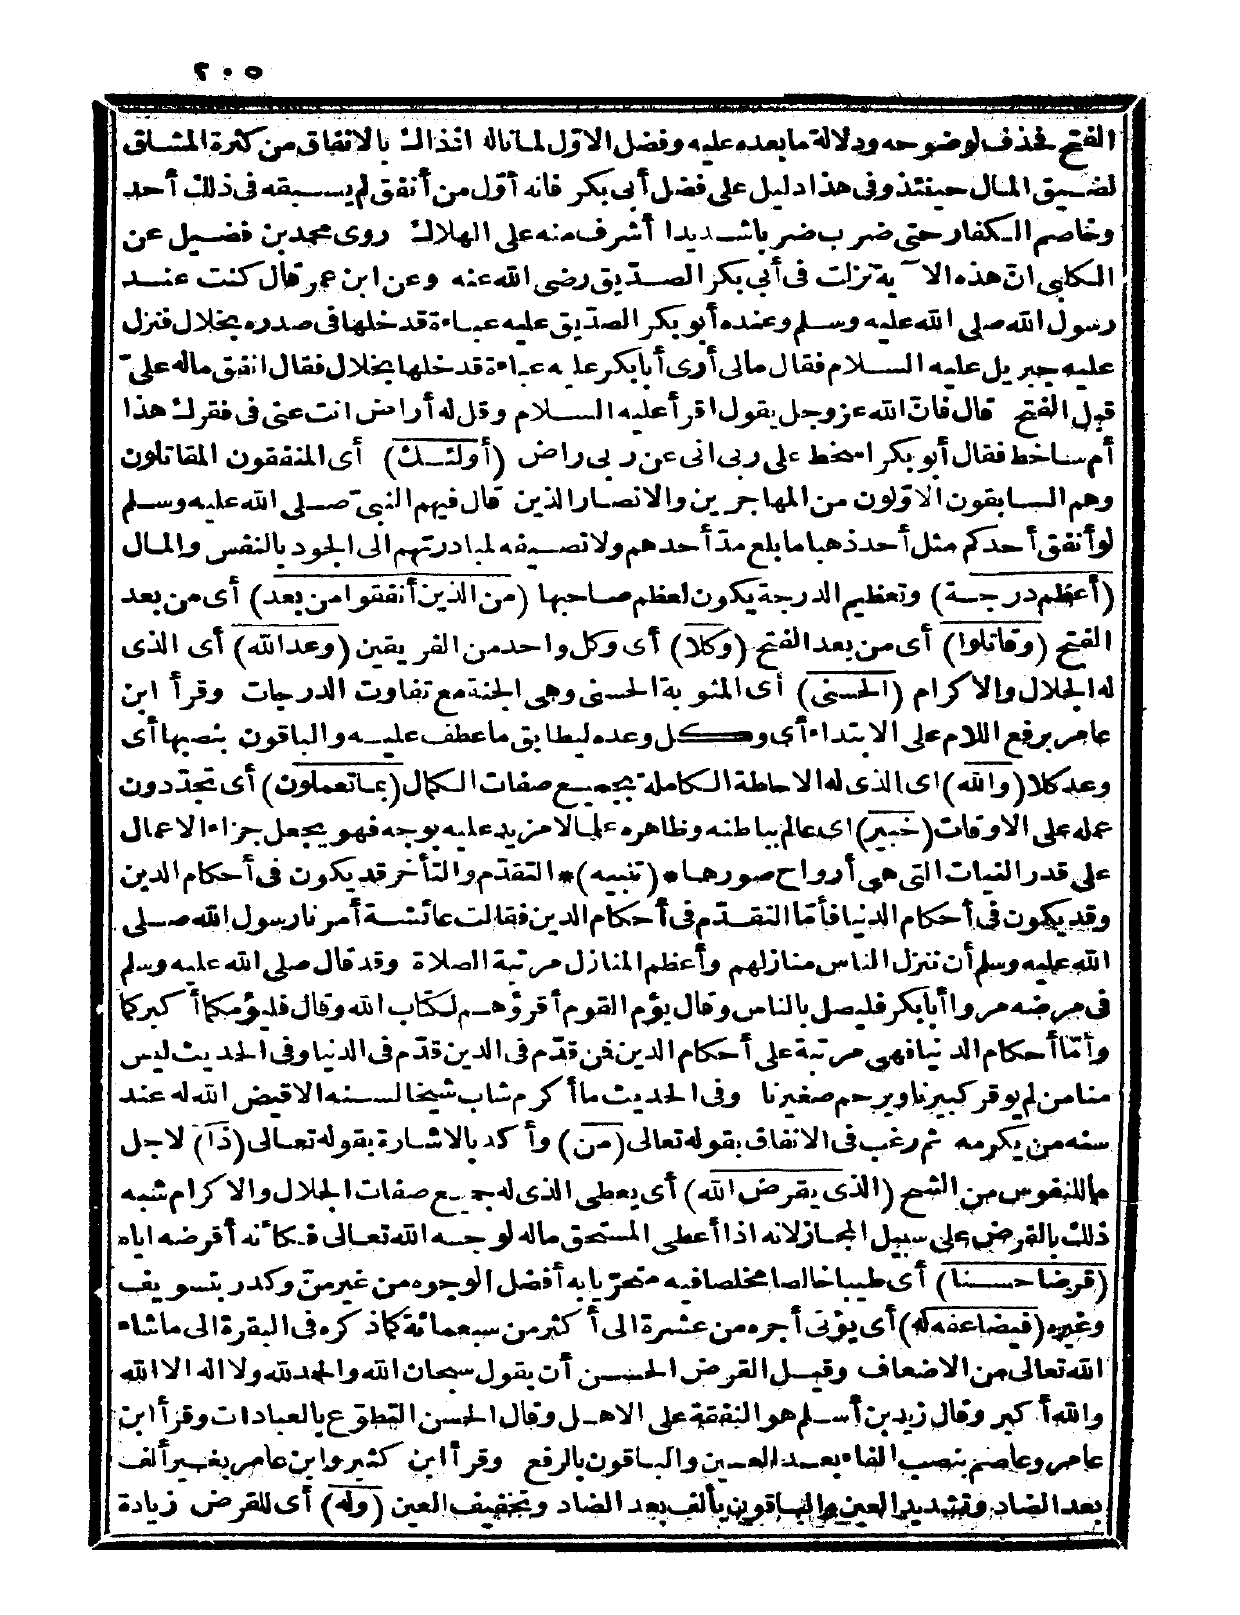 ٢٠٥
الفتح فحذف لوضوحه ودلالة ما بعده عليه وفضل الاوّل لما ناله اذ ذاك بالانفاق من كثرة المشاق
لضيق المال حينئذ وفى هذا دليل على فضل أبى بكر فانه أوّل من أنفق لم يسبقه فى ذلك أحد
وخاصم الكفار حتى ضرب ضربا شديدا أشرف منه على الهلاك روى محمد بن فضيل عن
الكلبى انّ هذه الآية نزلت فى أبى بكر الصدّيق رضى الله عنه وعن ابن عمر قال كنت عند
رسول الله صلى الله عليه وسلم وعنده أبو بكر الصدّيق عليه عباءة قد خلها فى صدره بخلال فنزل
عليه جبريل عليه السلام فقال مالى أرى أبا بكر عليه عباءة قد خلها بخلال فقال انفق ماله علىّ
قبل الفتح قال فانّ الله عز وجل يقول اقرأ عليه السلام وقل له أراض انت عنى فى فقرك هذا
أم ساخط فقال أبو بكر اسخط على ربى انى عن ربى راض (أولئك) أى المنفقون المقاتلون
وهم السابقون الاوّلون من المهاجرين والانصار الذين قال فيهم النبىّ صلى الله عليه وسلم
لو أنفق أحدكم مثل أحد ذهبا ما بلغ مدّ أحدهم ولا نصيفه لمبادرتهم الى الجود بالنفس والمال
(أعظم درجة) وتعظيم الدرجة يكون لعظم صاحبها (من الذين أنفقوا من بعد) أى من بعد
الفتح (وقاتلوا) أى من بعد الفتح (وكلا) أى وكل واحد من الفريقين (وعد الله) أى الذى
له الجلال والاكرام (الحسنى) أى المثوبة الحسنى وهى الجنة مع تفاوت الدرجات وقرأ ابن
عامر برفع اللام على الابتداء أى وكل وعده ليطابق ما عطف عليه والباقون بنصبها أى
وعد كلا (والله) اى الذى له الاحاطة الكاملة بجميع صفات الكمال (بما تعملون) أى تجدّدون
عمله على الاوقات (خبير) اى عالم بباطنه وظاهره علما لا مزيد عليه بوجه فهو يجعل جزاء الاعمال
على قدر النيات التى هى أرواح صورها * (تنبيه) * التقدّم والتأخر قد يكون فى أحكام الدين
وقد يكون فى أحكام الدنيا فأمّا التقدّم فى أحكام الدين فقالت عائشة أمرنا رسول الله صلى
الله عليه وسلم أن ننزل الناس منازلهم وأعظم المنازل مرتبة الصلاة وقد قال صلى الله عليه وسلم
فى مرضه مروا أبا بكر فليصل بالناس وقال يؤم القوم أقرؤهم لكتاب الله وقال فليؤمكما أكبركما
وأمّا أحكام الدنيا فهى مرتبة على أحكام الدين فمن قدّم فى الدين قدّم فى الدنيا وفى الحديث ليس
منا من لم يوقر كبيرنا ويرحم صغيرنا وفى الحديث ما أكرم شاب شيخا لسنه الا قيض الله له عند
سنه من يكرمه ثم رغب فى الانفاق بقوله تعالى (من) وأكد بالاشارة بقوله تعالى (ذا) لاجل
ما للنفوس من الشح (الذى يقرض الله) أى يعطى الذى له جميع صفات الجلال والاكرام شبه
ذلك بالقرض على سبيل المجاز لانه اذا أعطى المستحق ماله لوجه الله تعالى فكأنه أقرضه اياه
(قرضا حسنا) أى طيبا خالصا مخلصا فيه متحرّيا به أفضل الوجوه من غير منّ وكدر بتسويف
وغيره (فيضاعفه له) أى يؤتى أجره من عشرة الى أكثر من سبعمائة كما ذكره فى البقرة الى ما شاء
الله تعالى من الاضعاف وقيل القرض الحسن أن يقول سبحان الله والحمد لله ولا اله الا الله
والله أكبر وقال زيد بن أسلم هو النفقة على الاهل وقال الحسن التطوّع بالعبادات وقرأ ابن
عامر وعاصم بنصب الفاء بعد العين والباقون بالرفع وقرأ ابن كثير وابن عامر بغير ألف
بعد الضاد وتشديد العين والباقون بألف بعد الضاد وتخفيف العين (وله) أى للقرض زيادة